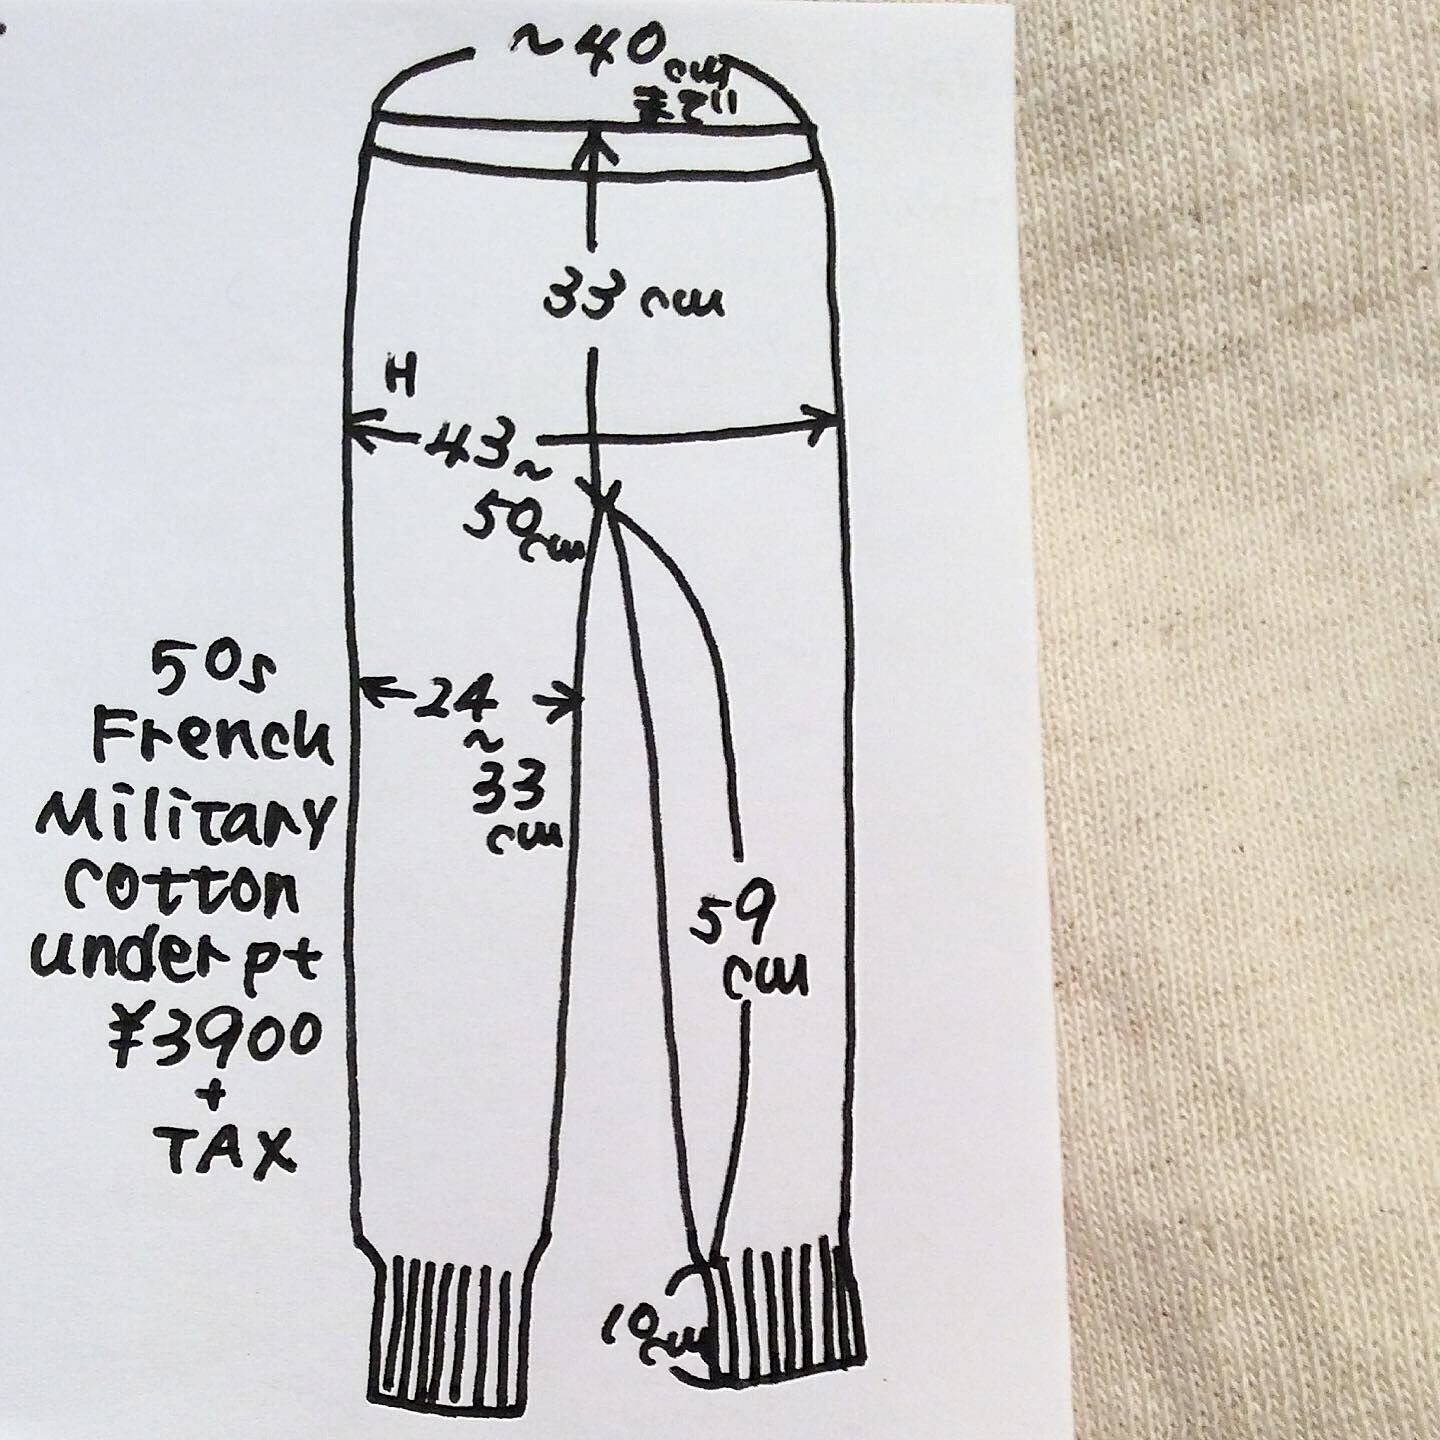 ~40cm
まで
33cm
H
43~
50cm
24
~
33
cm
59
cm
10cm
50s
French
Military
cotton
under pt
¥3900
+
TAX